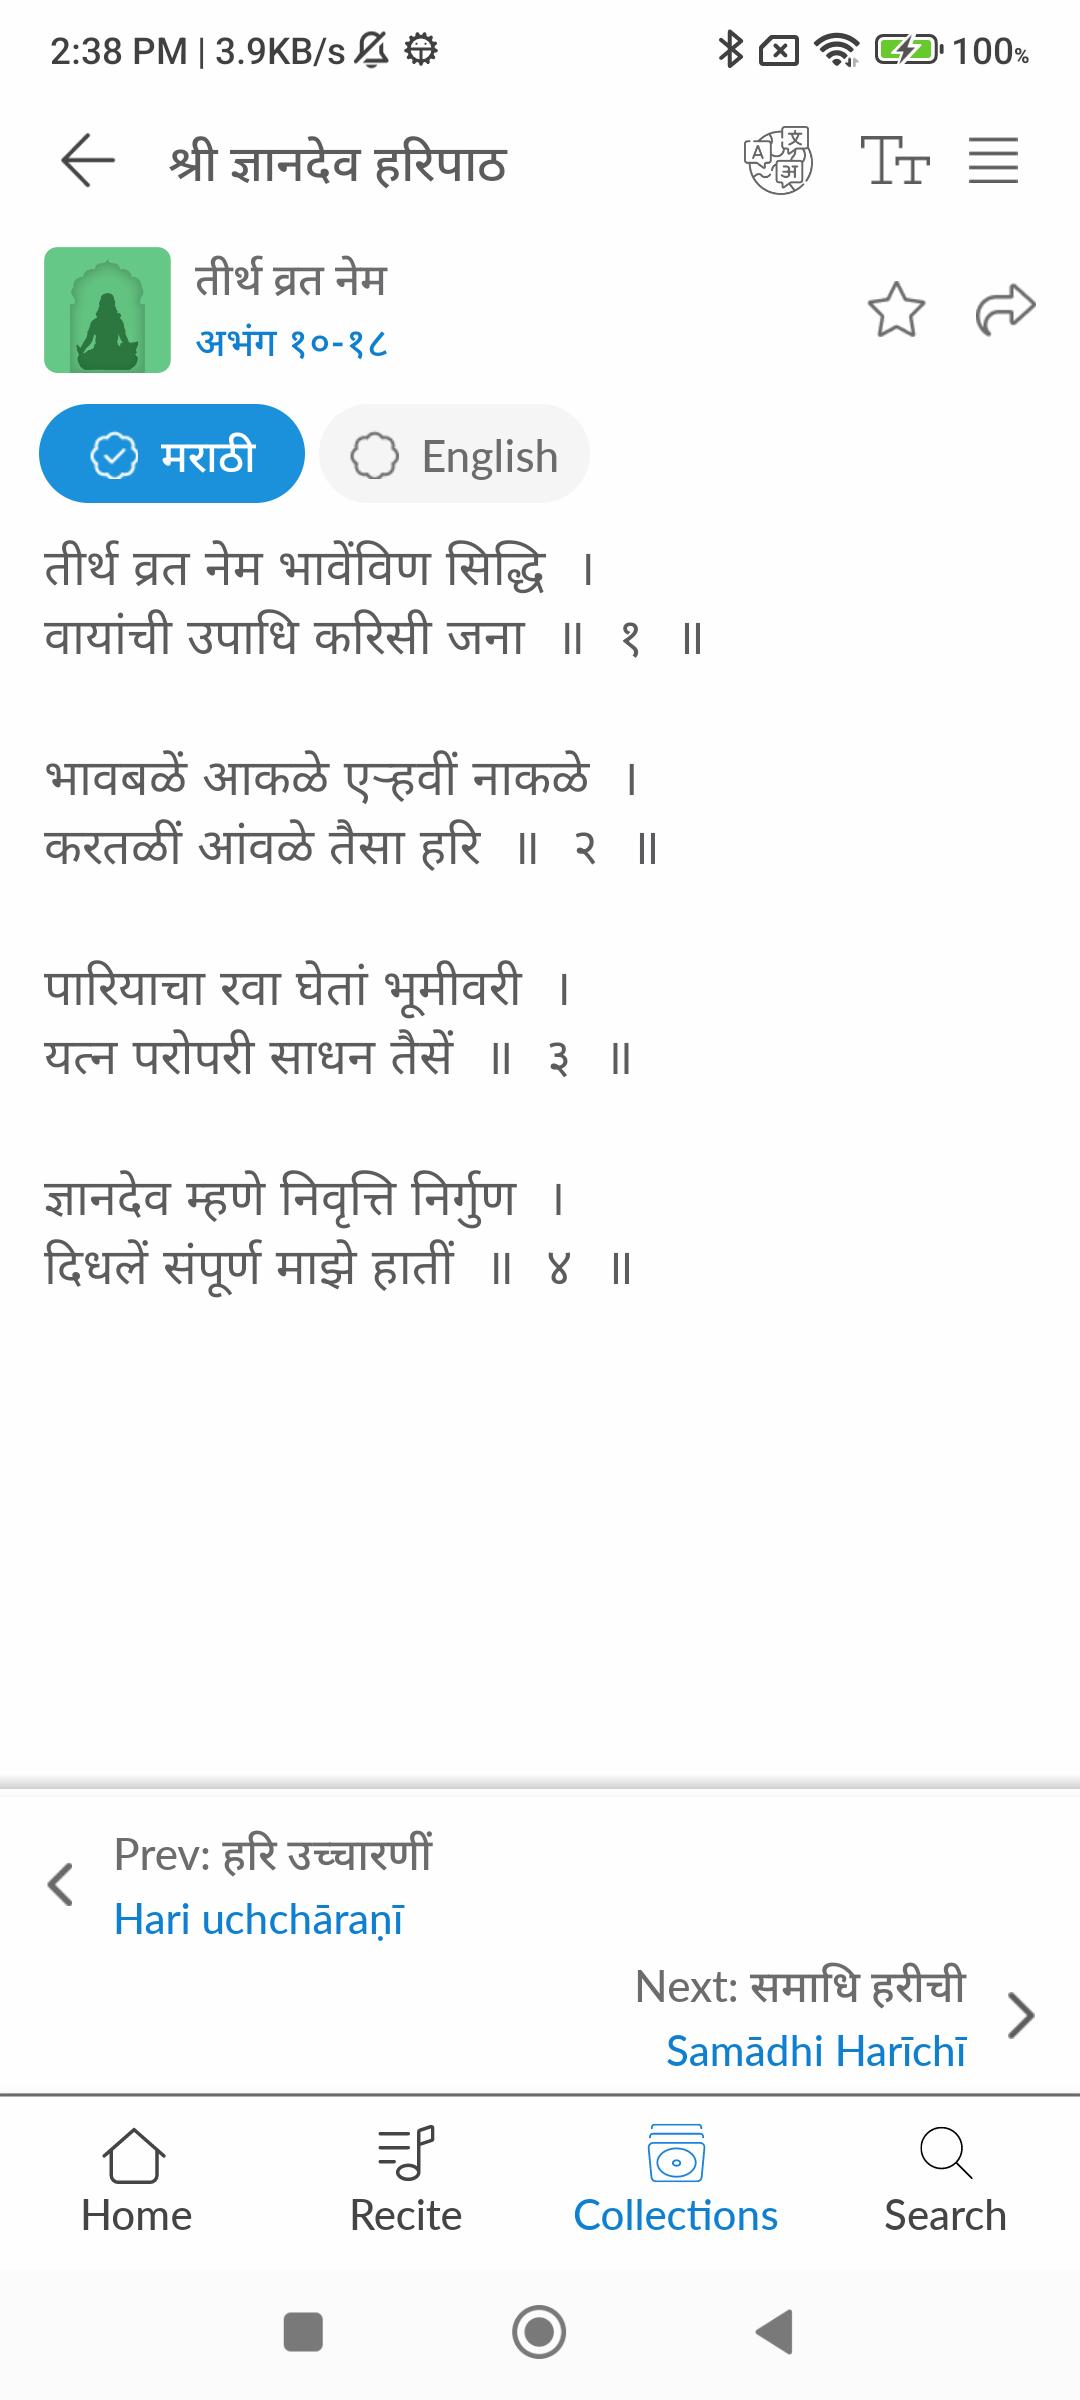 2:38 PM | 3.9KB/s 100%
श्री ज्ञानदेव हरिपाठ
तीर्थ व्रत नेम
अभंग १०-१८
मराठी English
तीर्थ व्रत नेम भावेंविण सिद्धि ।
वायांची उपाधि करिसी जना ॥ १ ॥
भावबळें आकळे एऱ्हवीं नाकळे ।
करतळीं आंवळे तैसा हरि ॥ २ ॥
पारियाचा रवा घेतां भूमीवरी ।
यत्न परोपरी साधन तैसें ॥ ३ ॥
ज्ञानदेव म्हणे निवृत्ति निर्गुण ।
दिधलें संपूर्ण माझे हातीं ॥ ४ ॥
Prev: हरि उच्चारणीं
Hari uchchāraṇī
Next: समाधि हरीची
Samādhi Harīchī
Home Recite Collections Search